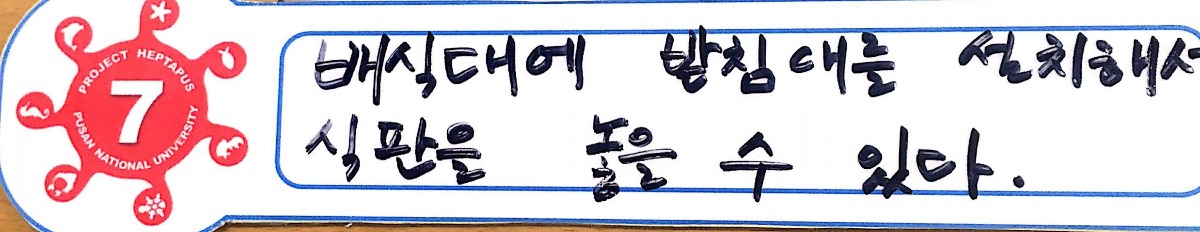 PROJECT HEPTAPUS
7
PUSAN NATIONAL UNIVERSITY
배식대에 받침대를 설치해서
식판을 놓을 수 있다.